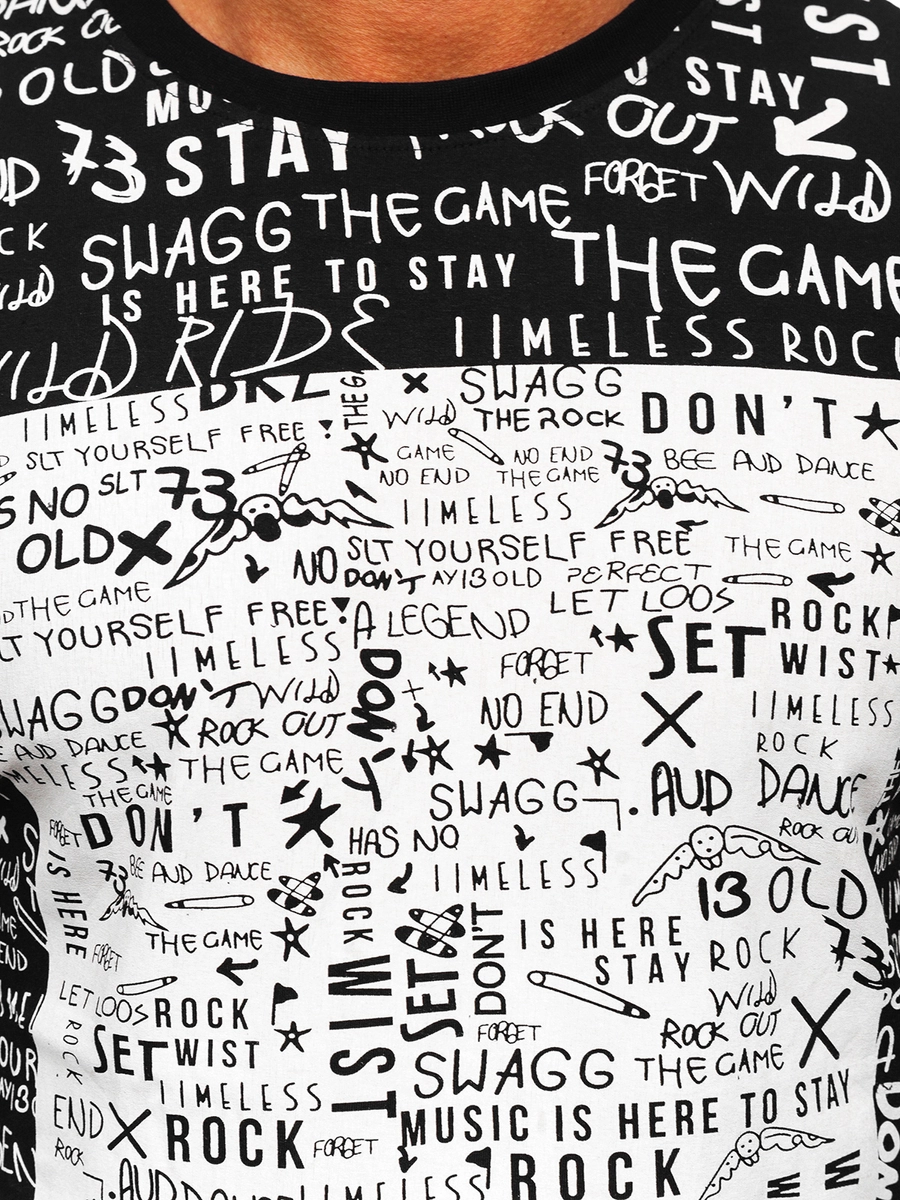 ROCK
OLD
STAY
73 STAY
OUT
FORGET WILD
SWAGG THE GAME
IS HERE TO STAY
THE GAME
WILD RIDE
IIMELESS ROCK
IIMELESS
SWAGG
WILD THE ROCK DON'T
SLT YOURSELF FREE
GAME NO END 73 BEE AND DANCE
NO END THE GAME
S NO SLT 73
IIMELESS
OLD
NO SLT YOURSELF FREE THE GAME
DON'T AY13OLD PERFECT
THE GAME
LET LOOS
LT YOURSELF FREE A LEGEND ROCK
IIMELESS
FORGET SET WIST
DON'T
SWAGG DON'T WILD
NO END IIMELESS
AND DANCE ROCK OUT
ROCK
MELESS THE GAME
THE GAME
SWAGG AUD DANCE
FORGET DON'T
HAS NO
ROCK OU
IS HERE
73 BEE AND DANCE
ROCK
IIMELESS
13 OLD
THE GAME
DON'T
IS HERE
73
FORGET
STAY ROCK
WIST
SET
LET LOOS ROCK
WILD
ROCK
FORGET
ROCK OUT
SET WIST
SWAGG THE GAME
IIMELESS
MUSIC IS HERE TO STAY
END ROCK FORGET
ROCK
ROCK
AUD DANCE IIMELESS